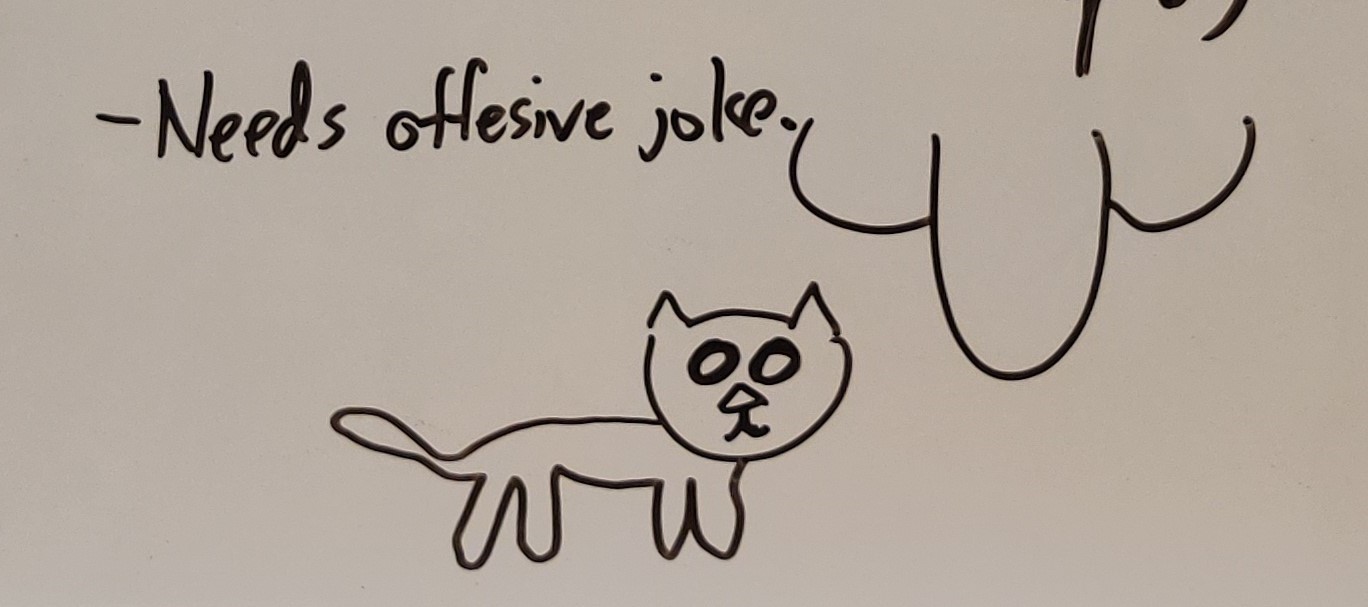 - Needs offesive joke.